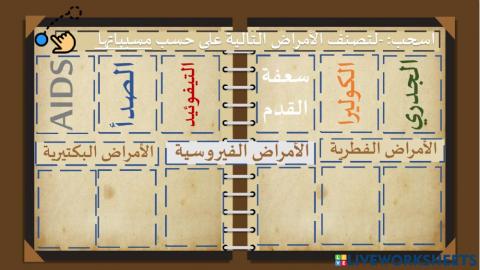 اسحب: -لتصنف الأمراض التالية على حسب مسبباتها
الجدري
الكوليرا
سعفة
القدم
التيفوئيد
الصدأ
AIDS
الأمراض الفطرية
الأمراض الفيروسية
الأمراض البكتيرية
LIVEWORKSHEETS